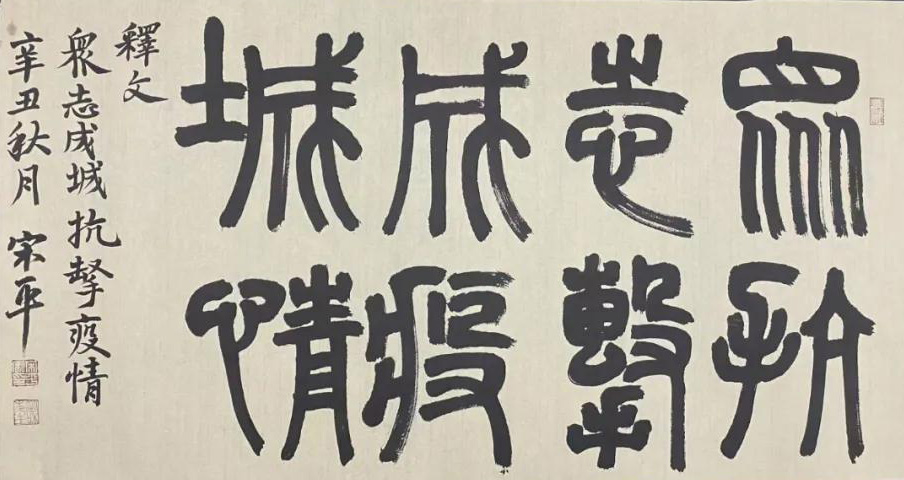 眾志成城
抗擊疫情
釋文
衆志成城抗擊疫情
辛丑秋月 宋平